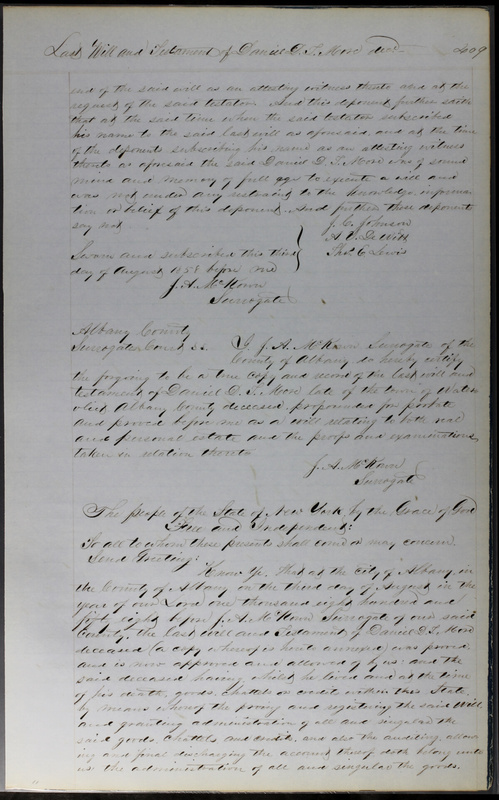 Last Will and Testament of Daniel D. T. More decd 409
end of the said will as an attesting witness thereto and at the
request of the said testator. And this deponent further saith
that at the said time when the said testator subscribed
his name to the said last will as aforesaid, and at the time
of the deponent subscribing his name as an attesting witness
thereto as aforesaid the said Daniel D. T. More was of sound
mind and memory of full age to execute a will and
was not under any restraint to the knowledge, informa
tion or belief of this deponent. And further these deponents
say not
J. C. Johnson
A. V. De Witt
Thos. C. Lewis
Sworn and subscribed this third
day of August 1858 before me
J. A. McKown
Surrogate
Albany County
Surrogates Court ss. I J. A. McKown Surrogate of the
County of Albany do hereby certify
the foregoing to be a true copy and record of the last will and
testament of Daniel D. T. More late of the town of Water
vliet Albany County deceased, propounded for probate
and proved before me as a will relating to both real
and personal estate and the proofs and examinations
taken in relation thereto
J. A. McKown
Surrogate
The People of the State of New York, by the Grace of God
Free and Independent:
To all to whom these presents shall come or may concern
Send Greeting:
Know Ye, That at the City of Albany, in
the County of Albany on the third day of August in the
year of our Lord one thousand eight hundred and
forty eight before J. A. McKown Surrogate of our said
County, the last will and Testament of Daniel D. T. More
deceased (a copy whereof is hereto annexed) was proved
and is now approved and allowed of by us: and the
said deceased having whilst he lived and at the time
of his death, goods, chattels or credits within this State,
by means whereof the proving and registering the said Will
and granting administration of all and singular the
said goods, chattels and credits, and also the auditing, allow
ing and final discharging the account thereof doth belong unto
us the administration of all and singular the goods,